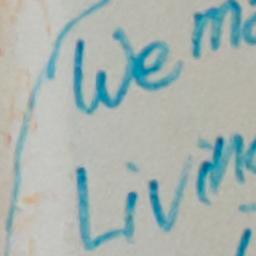 We ma
Livin